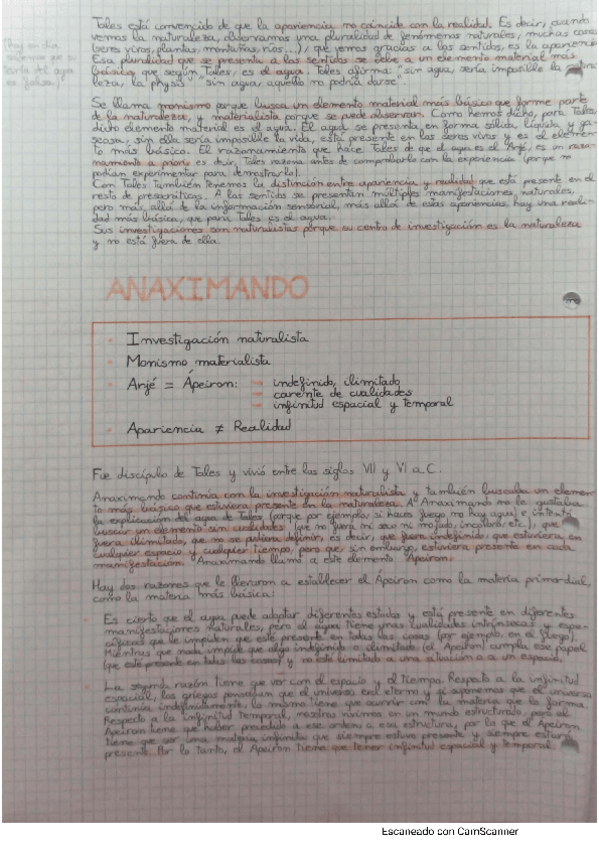 Tales está convencido de que la apariencia no coincide con la realidad. Es decir, cuando
vemos la naturaleza, observamos una pluralidad de fenómenos naturales, muchas cosas
(seres vivos, plantas, montañas, ríos...), que vemos gracias a los sentidos, es la apariencia.
Esa pluralidad que se presenta a los sentidos se debe a un elemento material más
básico que según Tales, es el agua. Tales afirma: "sin agua, sería imposible la
leza, la physis" "sin agua, aquello no podría darse".
Se llama monismo porque busca un elemento material más básico que forme parte
de la naturaleza, y materialista porque se puede observar. Como hemos dicho, para Tales
dicho elemento material es el agua. El agua se presenta en forma sólida, líquida y ga-
seosa, sin ella sería imposible la vida, está presente en los seres vivos y es el elemen-
to más básico. El razonamiento que hace Tales de que el agua es el Arjé, es un razo-
namiento a priori es decir, Tales razona antes de comprobarlo con la experiencia (porque no
podían experimentar para demostrarlo).
Con Tales también tenemos la distinción entre apariencia y realidad que está presente en el
resto de presocráticos. A los sentidos se presentan múltiples manifestaciones naturales,
pero más allá de la información sensorial, más allá de estas apariencias, hay una reali-
dad más básica, que para Tales es el agua.
Sus investigaciones son naturalistas porque su centro de investigación es la naturaleza
y no está fuera de ella.
ANAXIMANDO
Investigación naturalista
Monismo materialista
Arjé = Ápeiron: → indefinido, ilimitado
→ carente de cualidades
→ infinitud espacial y temporal
Apariencia ≠ Realidad
Fue discípulo de Tales y vivió entre los siglos VII y VI a.C.
Anaximando continúa con la investigación naturalista y también buscaba un elemen-
to más básico que estuviera presente en la naturaleza. A Anaximando no le gustaba
la explicación del agua de Tales (porque por ejemplo, si haces fuego no hay agua) e intentó
buscar un elemento sin cualidades (que no fuera ni seco ni mojado, incoloro etc.), que
fuera ilimitado, que no se pudiera definir, es decir, que fuera indefinido; que estuviera en
cualquier espacio y cualquier tiempo, pero que sin embargo, estuviera presente en cada
manifestación. Anaximando llamó a este elemento "Ápeiron".
Hay dos razones que le llevaron a establecer el Ápeiron como la materia primordial,
como la materia más básica:
Es cierto que el agua puede adoptar diferentes estados y está presente en diferentes
manifestaciones naturales, pero el agua tiene unas cualidades intrínsecas y espe-
cíficas que le impiden que esté presente en todas las cosas (por ejemplo, en el fuego).
Mientras que nada impide que algo indefinido o ilimitado (el Ápeiron) cumpla ese papel
(que esté presente en todas las cosas) y no esté limitado a una situación o a un espacio.
La segunda razón tiene que ver con el espacio y el tiempo. Respecto a la infinitud
espacial, los griegos pensaban que el universo era eterno y si suponemos que el universo
continúa indefinidamente, lo mismo tiene que ocurrir con la materia que lo forma.
Respecto a la infinitud temporal, nosotros vivimos en un mundo estructurado, pero el
Ápeiron tiene que haber precedido a ese orden o esa estructura, por lo que el Ápeiron
tiene que ser una materia infinita que siempre estuvo presente y siempre estará
presente. Por lo tanto, el Ápeiron tiene que tener infinitud espacial y temporal.
Escaneado con CamScanner